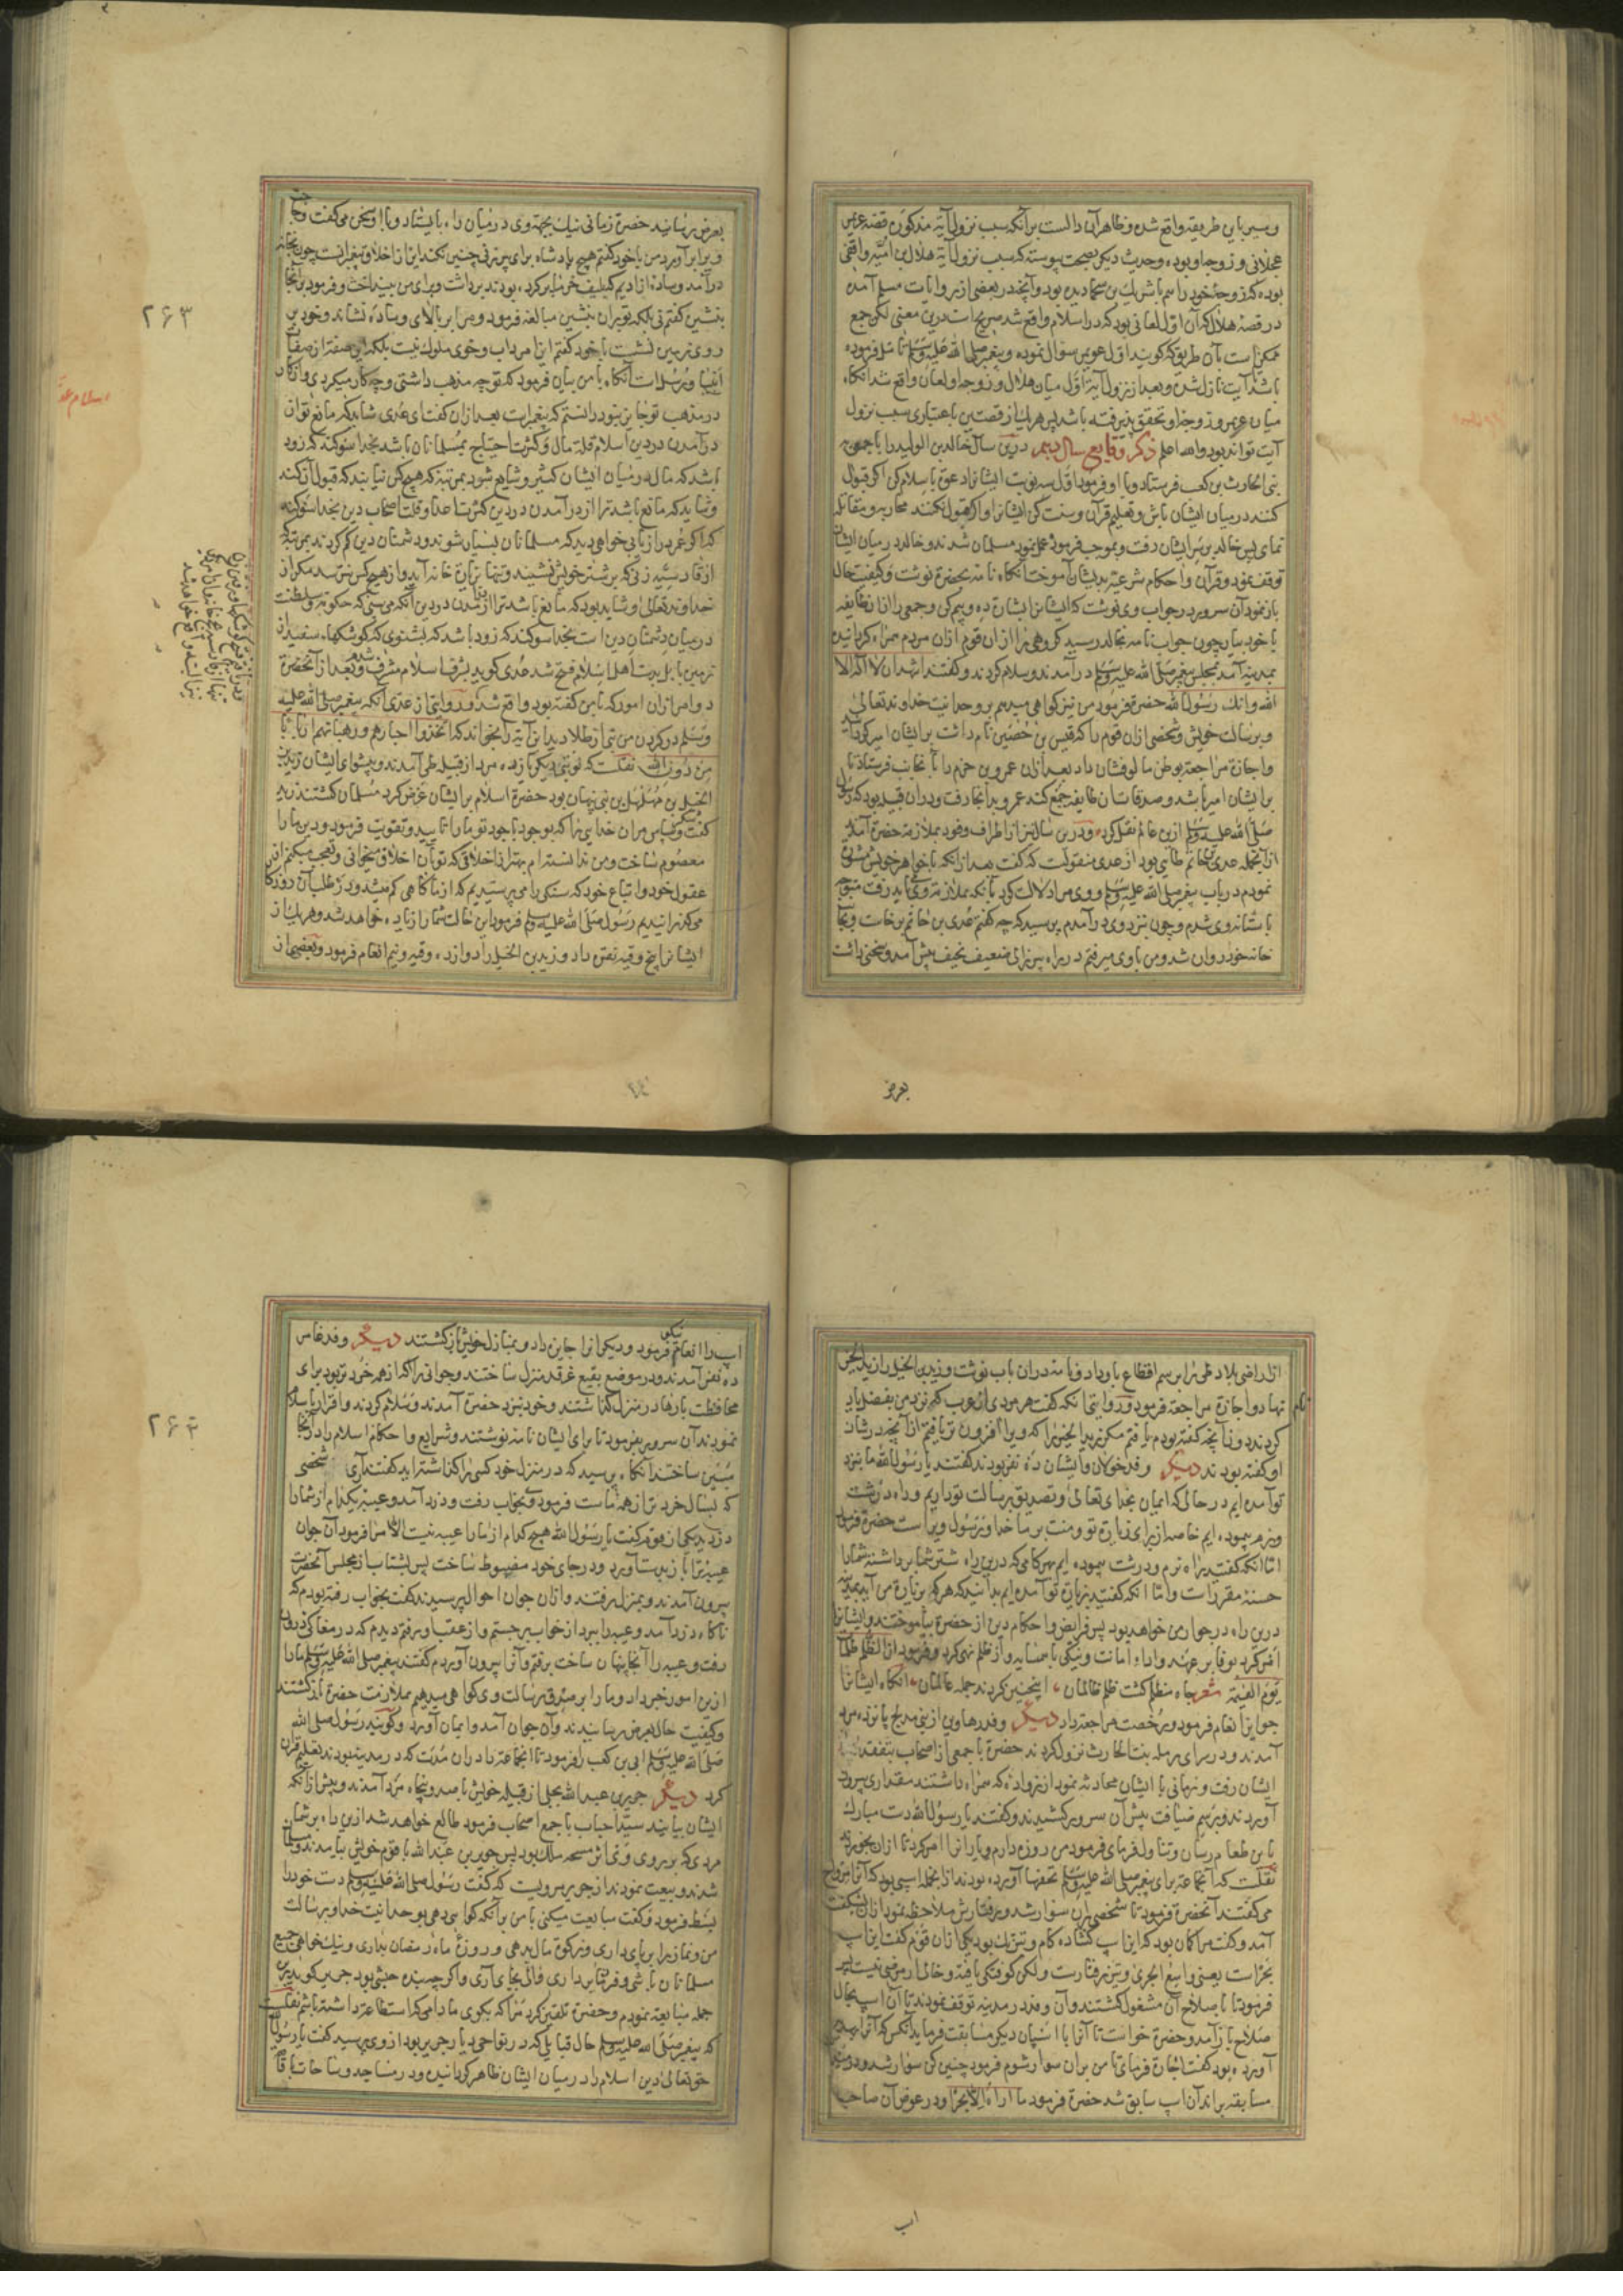 و سیر باین طریقه واقع شده و ظاهر آن دالست برآنکه سبب نزول آیهٔ مذکوره قصهٔ عویمر
عجلانی و زوجهٔ او بوده و حدیث دیگر بصحت پیوسته که سبب نزول آیه هلال بن امیّه واقفی
بوده که زوجهٔ خود را متهم با شریک بن سحما دیده بود و آنچه در بعضی از روایات مسلم آمده
در قصهٔ هلال که آن اول لعانی بود که در اسلام واقع شد صریح است درین معنی لکن جمع
ممکن است بآن طریق که گویند اول عویمر سؤال نموده و پیغمبر صلی الله علیه وسلم تامل فرموده
باشد آیت نازل شده و بعد از نزول آیه اول میان هلال و زوجهٔ او لعان واقع شد آنگاه
میان عویمر و زوجهٔ او تحقق پذیرفته باشد پس هر یک از قصتین باعتباری سبب نزول
آیت تواند بود والله اعلم ذکر وقایع سال دهم درین سال خالد بن الولید را با جمعی به
بنی الحارث بن کعب فرستاد و با او فرمود اول سه نوبت ایشانرا دعوت باسلام کن اگر قبول
کنند در میان ایشان باش و تعلیم قرآن و سنت کن ایشانرا و اگر قبول نکنند محاربه و مقاتله
نمای پس خالد بن بر ایشان رفت و بموجب فرموده عمل نمود مسلمان شدند و خالد در میان ایشان
توقف نمود و قرآن و احکام شرعیه بدیشان آموخت آنگاه نامه بحضرة نوشت و کیفیت حال
باز نمود آن سرور در جواب وی نوشت که ایشانرا بشارت ده و بیم کن و جمعی را از آن طایفه
با خود بیار چون جواب نامه بخالد رسید گروهی را از آن قوم از آن مردم همراه گردانیده
بمدینه آمد بمجلس پیغمبر صلی الله علیه وسلم درآمدند و سلام کردند و گفتند اشهد ان لا اله الا
الله و انک رسول الله حضرة فرمود من نیز گواهی میدهم بر وحدانیت خداوند تعالی
و برسالت خویش و شخصی از آن قوم را که قیس بن حصین نام داشت بر ایشان امیر گردانید
و اجازة مراجعة بوطن مالوفشان داد بعد از آن عمرو بن حزم را بآنجانب فرستاد تا
بر ایشان امیر باشد و صدقات آن طایفه جمع کند عمرو بدآنجا رفت و در آن قبیله بود که رسول
صلی الله علیه وسلم ازین عالم نقل کرد و درین سال نیز از اطراف وفود بملازمة حضرة آمدند
از آنجمله عدی بن حاتم طایی بود از عدی منقولست که گفت بعد از آنکه با خواهر خویش مشورة
نمودم در باب پیغمبر صلی الله علیه وسلم و وی مرا دلالت کرد بآنکه بملازمة وی باید رفت متوجه
باستانهٔ وی شدم و چون نزد وی درآمدم پرسید که چه کسی گفتم عدی بن حاتم برخاست و بجانب
خانه خود روان شد و من با وی میرفتم در راه پیرزالی ضعیف نحیف پیش آمد و سخنی داشت
بعرض
بعرض رسانید حضرة زمانی نیک بجهة وی در میان راه بایستاد و با او سخن می گفت و حاجت
ویرا برآورد من با خود گفتم هیچ پادشاه برای پیرزنی چنین نکند این از اخلاق پیغمبرانست چون بخانه
درآمد وساده از ادیم که بلیف خرما پر کرده بودند برداشت و برای من بینداخت و فرمود برآنجا
بنشین گفتم نی بلکه تو بران بنشین مبالغه فرمود و مرا بر بالای وساده نشاند و خود بر
روی زمین نشست با خود گفتم این امر داب و خوی ملوک نیست بلکه این صفة از صفات
انبیا و رسل است آنگاه با من بیان فرمود که تو چه مذهب داشتی و چه کار میکردی و آن کار
در مذهب تو جایز نبود دانستم که پیغمبرست بعد از آن گفت ای عدی شاید که مانع تو از
درآمدن در دین اسلام قلة مال و کثرت احتیاج مسلمانان باشد بخدا سوگند که زود
باشد که مال در میان ایشان کثیر و شایع شود بمرتبهٔ که هیچ کس نیابند که قبول آن کند
و شاید که مانع باشد ترا از درآمدن در دین کثرت اعدا و قلت اصحاب دین بخدا سوگند
که اگر عمر دراز یابی خواهی دید که مسلمانان بسیار شوند و دشمنان دین کم گردند بمرتبهٔ که
از قادسیه زنی که بر شتر خویش نشیند و تنها بزیارة خانه آید و از هیچ کس نترسد مگر از
خداوند تعالی و شاید بود که مانع باشد ترا از آمدن در دین آنکه می بینی که حکومة و سلطنت
در میان دشمنان دین است بخدا سوگند که زود باشد که بشنوی که کوشکهاء سفید از
زمین بابل بدست اهل اسلام فتح شد عدی گوید بشرف اسلام مشرف شدم و بعد از آنحضرة
دو امر از آن امور که با من گفته بود واقع شد و در روایتی از عدی آنکه پیغمبر صلی الله علیه
وسلم در گردن من بتی از طلا دید این آیة را بخواند که اتخذوا احبارهم و رهبانهم اربابا
من دون الله نقلست که نوبتی دیگر پانزده مرد از قبیله طی آمدند و پیشوای ایشان زید
الخیل بن مهلهل بن نبهان بود حضرة اسلام بر ایشان عرض کرد مسلمان گشتند زید
گفت شکر و سپاس مر آن خدایی را که بوجود باجود تو ما را تایید و تقویت فرمود و دین ما را
معصوم ساخت و من ندانسته ام بهتر از اخلاقی که تو بآن اخلاق میخوانی و تعجب میکنم از
عقول خود و اتباع خود که سنگی را می پرستیدیم که از ما گاهی گم میشد و در طلب آن روزگار
می گذرانیدیم رسول صلی الله علیه وسلم فرمود این حالت شما را زیاده خواهد شد و هر یک از
ایشانرا پنج وقیه نقره داد و زید بن الخیل را دوازده وقیه و نیم انعام فرمود و بعضی از
۲۶۳
اسلام عدی
از اراضی بلاد طی را برسم اقطاع باو داد و نامه در آن باب نوشت و زید الخیل را زید الخیر
نام نهاد و اجازة مراجعة فرمود و در روایتی آنکه گفت هر مردی از عرب که نزد من بفضل یاد
کردند دون آنچه گفته بودم یافتم مگر زید الخیر را که ویرا افزون تر یافتم از آنچه در شان
او گفته بودند دیگر وفد خولان و ایشان ده نفر بودند گفتند یا رسول الله ما بنزد
تو آمده ایم در حالی که ایمان بخدای تعالی و تصدیق برسالت تو داریم و راه درشت
و نرم پیموده ایم خاصه از برای زیارة تو و منت بر ما خدا و رسول ویراست حضرة فرمود
اما آنکه گفتید راه نرم و درشت پیموده ایم بهر گامی که درین راه شتر شما برداشته شما را
حسنهٔ مقررست و اما آنکه گفتید بزیارة تو آمده ایم بدانید که هر که بزیارة من آید بمدینه
درین راه در جوار من خواهد بود پس فرایض و احکام دین از حضرة بیاموختند و ایشانرا
امر کرد بوفا بر عهد و اداء امانت و نیکی با همسایه و از ظلم نهی کرد و فرمود ان الظلم ظلمات
یوم القیمة شعر چاه مظلم گشت ظلم ظالمان اینچنین کردند جمله عالمان آنگاه ایشانرا
جوایز انعام فرمود و رخصت مراجعة داد دیگر وفد رهاوین از بنی مدحج پانزده مرد
آمدند و در سرای رمله بنت الحارث نزول کردند حضرة با جمعی از اصحاب بتفقد
ایشان رفت و زمانی با ایشان محادثه نمود از زوادهٔ که همراه داشتند مقداری بیرون
آوردند و برسم ضیافت پیش آن سرور کشیدند و گفتند یا رسول الله دست مبارک
باین طعام رسان و تناول فرمای فرمود من روزه دارم و یارانرا امر کرد تا از آن بخورند
نقلست که آنجماعة برای پیغمبر صلی الله علیه وسلم تحفها آورده بودند از آنجمله اسپی بود که آنرا مرواح
می گفتند آنحضرة فرمود تا شخصی بر آن سوار شد و رفتارش ملاحظه نمود از آن شگفت
آمد و گفت مرا گمان بود که این اسپ گشاده گام و تیزتک بود یکی از آن قوم گفت این اسپ
بحراست یعنی واسع الجری و تیز رفتارست و لکن کوفتگی یافته و خالی از مرضی نیست پس
فرمود تا باصلاح آن مشغول گشتند و آن وفد در مدینه توقف نمودند تا آن اسپ بحال
صلاح باز آمد و حضرة خواست تا آنرا با اسپان دیگر مسابقت فرماید آنکس که آنرا بهدیه
آورده بود گفت اجازة فرمای تا من بر آن سوار شوم فرمود چنین کن سوار شد و در وقت
مسابقه براند آن اسپ سابق شد حضرة فرمود ما اراه الا بحرا و در عوض آن صاحب
اسپ
اسپ را انعام نیکو فرمود و دیگرانرا جایزه داد و بمنازل خویش بازگشتند دیگر وفد غامد
ده نفر آمدند و در موضع بقیع غرقد منزل ساختند و جوانی را که از همه خردتر بود برای
محافظت بارها در منزل گذاشتند و خود بنزد حضرة آمدند و سلام کردند و اقرار باسلام
نمودند آن سرور بفرمود تا برای ایشان نامه نوشتند و شرایع و احکام اسلام را در آنجا
مبین ساختند آنگاه پرسید که در منزل خود کسی را گذاشته اید گفتند آری شخصی
که بسال خردتر از همه ماست فرمود وی بخواب رفت و دزد آمد و عیبهٔ یکی از شما را
دزدید یکی از وفد گفت یا رسول الله هیچ کدام از ما را عیبه نیست الا مرا فرمود آن جوان
عیبهٔ ترا باز بدست آورد و در جای خود مضبوط ساخت پس بشتاب از مجلس آنحضرت
بیرون آمدند و بمنزل رفتند و از آن جوان احوال پرسیدند گفت بخواب رفته بودم که
ناگاه دزد آمد و عیبه را ببرد از خواب برجستم و از عقب او رفتم دیدم که در مغاکی فرود
رفت و عیبه را آنجا پنهان ساخت برفتم و آنرا بیرون آوردم گفتند پیغمبر صلی الله علیه وسلم ما را
ازین امور خبر داد و ما را بر صدق رسالت وی گواهی میدهیم بملازمت حضرة بازگشتند
و کیفیت حال بعرض رسانیدند و آن جوان آمد و ایمان آورد و گویند رسول صلی الله
صلی الله علیه وسلم ابی بن کعب را فرمود تا آنجماعة را در آن مدت که در مدینه بودند تعلیم قرآن
کرد دیگر جریر بن عبد الله بجلی از قبیله خویش با صد و پنجاه مرد آمدند و پیش از آنکه
ایشان بیایند سید احباب با جمع اصحاب فرمود طالع خواهد شد ازین راه بر شما
مردی که بر روی وی اثر مسحهٔ ملک بود پس جریر بن عبد الله با قوم خویش بیامدند و مسلمان
شدند و بیعت نمودند از جریر مرویست که گفت رسول صلی الله علیه وسلم دست خود را
بسط فرمود و گفت مبایعت میکنی با من برآنکه گواهی دهی بوحدانیت خدا و برسالت
من و نماز را بر پای داری و زکوة مال بدهی و روزهٔ ماه رمضان بداری و نیک خواهی جمیع
مسلمانان باشی و فرمانبرداری والی بجای آری و اگر چه بنده حبشی بود جریر گوید برین
جمله مبایعة نمودم و حضرة تلقین کرد مرا که بگوی مادامی که استطاعة داشته باشم نقلست
که پیغمبر صلی الله علیه وسلم حال قبایلی که در نواحی دیار جریر بود از وی پرسید گفت یا رسول الله
حق تعالی دین اسلام را در میان ایشان ظاهر گردانیده و در مساجد و ساحات بانگ
۲۶۴